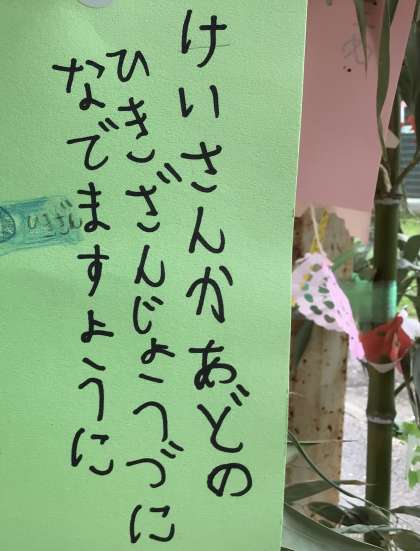 けいさんかあどの
ひきざんじょうづに
なでますように
ひきざん